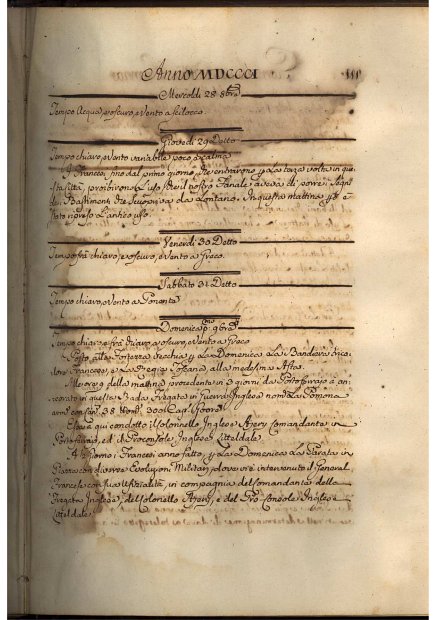 Anno MDCCCI
Mercoldi 28 8bre
Tempo Acqua, e oscuro, e Vento a Scilocco
Giovedi 29 Detto
Tempo chiaro, e Vento variabile poco, e calma
I Francesi, che dal primo giorno che entrorono per la terza volta in que=
sta Città, proibirono l'uso che il nostro Fanale aveva di porre i segni
dei Bastimenti che scopriva da Lontano. In questa mattina è
stato ripreso l'antico uso.
Venerdi 30 Detto
Tempo frà chiaro, e oscuro, e Vento a Greco.
Sabbato 31 Detto
Tempo chiaro, e Vento a Ponente
Domenica pmo 9bre
Tempo chiaro frà chiaro, e oscuro, e Vento a Greco
Fortezza Vecchia per la Domenica La Bandiera trico=
lore Francese, e La Toscana alla medesima Asta.
della mattina procedente in 3 giorni da Portoferrajo è an=
corato in questa Rada Fregata da Guerra Inglese nomta La Pomona
armta con Can 38 Uomi 300
E con qui condotto il Colonnello Inglese Ajery Comandante in
Portoferrajo, ed il Proconsole Inglese Litteldale.
I Francesi anno fatto, per la Domenica La Parata in
Piazza con diverse Evoluzioni Militari, dove vi è intervenuto il General
Francese con sua Ufizialità, in compagnia del Comandante della
Fregata Inglese, del Colonello Ajery, e del Pro Console Inglese
Litteldale.